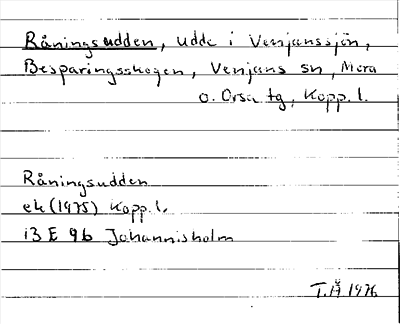 Råningsudden, udde i Venjanssjön,
Besparingsskogen, Venjans sn, Mora
o. Orsa tg, Kopp. l.
Råningsudden
ek (1975) Kopp. l.
13 E 9b Johannisholm
T.Å. 1976